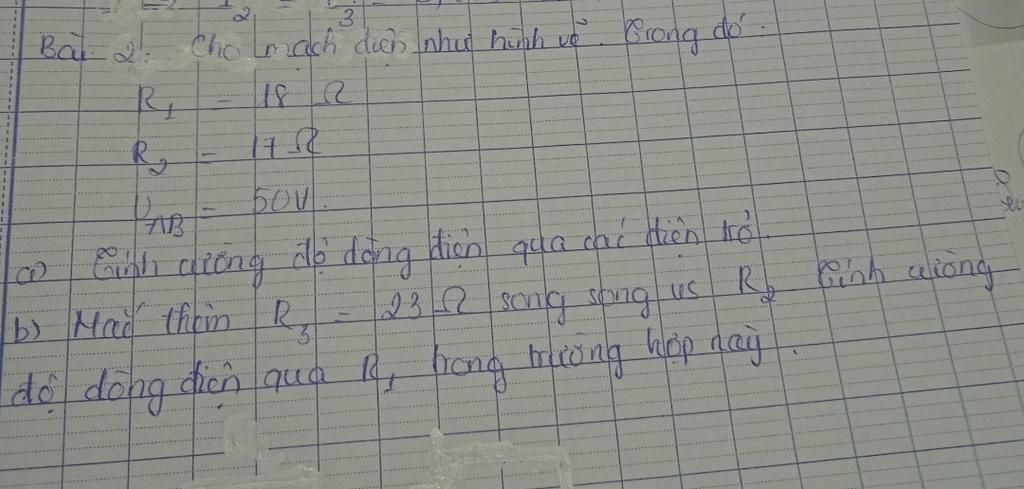 2 3
Bài 2: Cho mạch điện như hình vẽ. Trong đó:
R₁ = 18 Ω
R₂ = 17 Ω
U_AB = 50V.
a) Tính cường độ dòng điện qua các điện trở.
b) Mắc thêm R₃ = 23 Ω song song vs R₂ Tính cường
độ dòng điện qua R₁ trong trường hợp này.